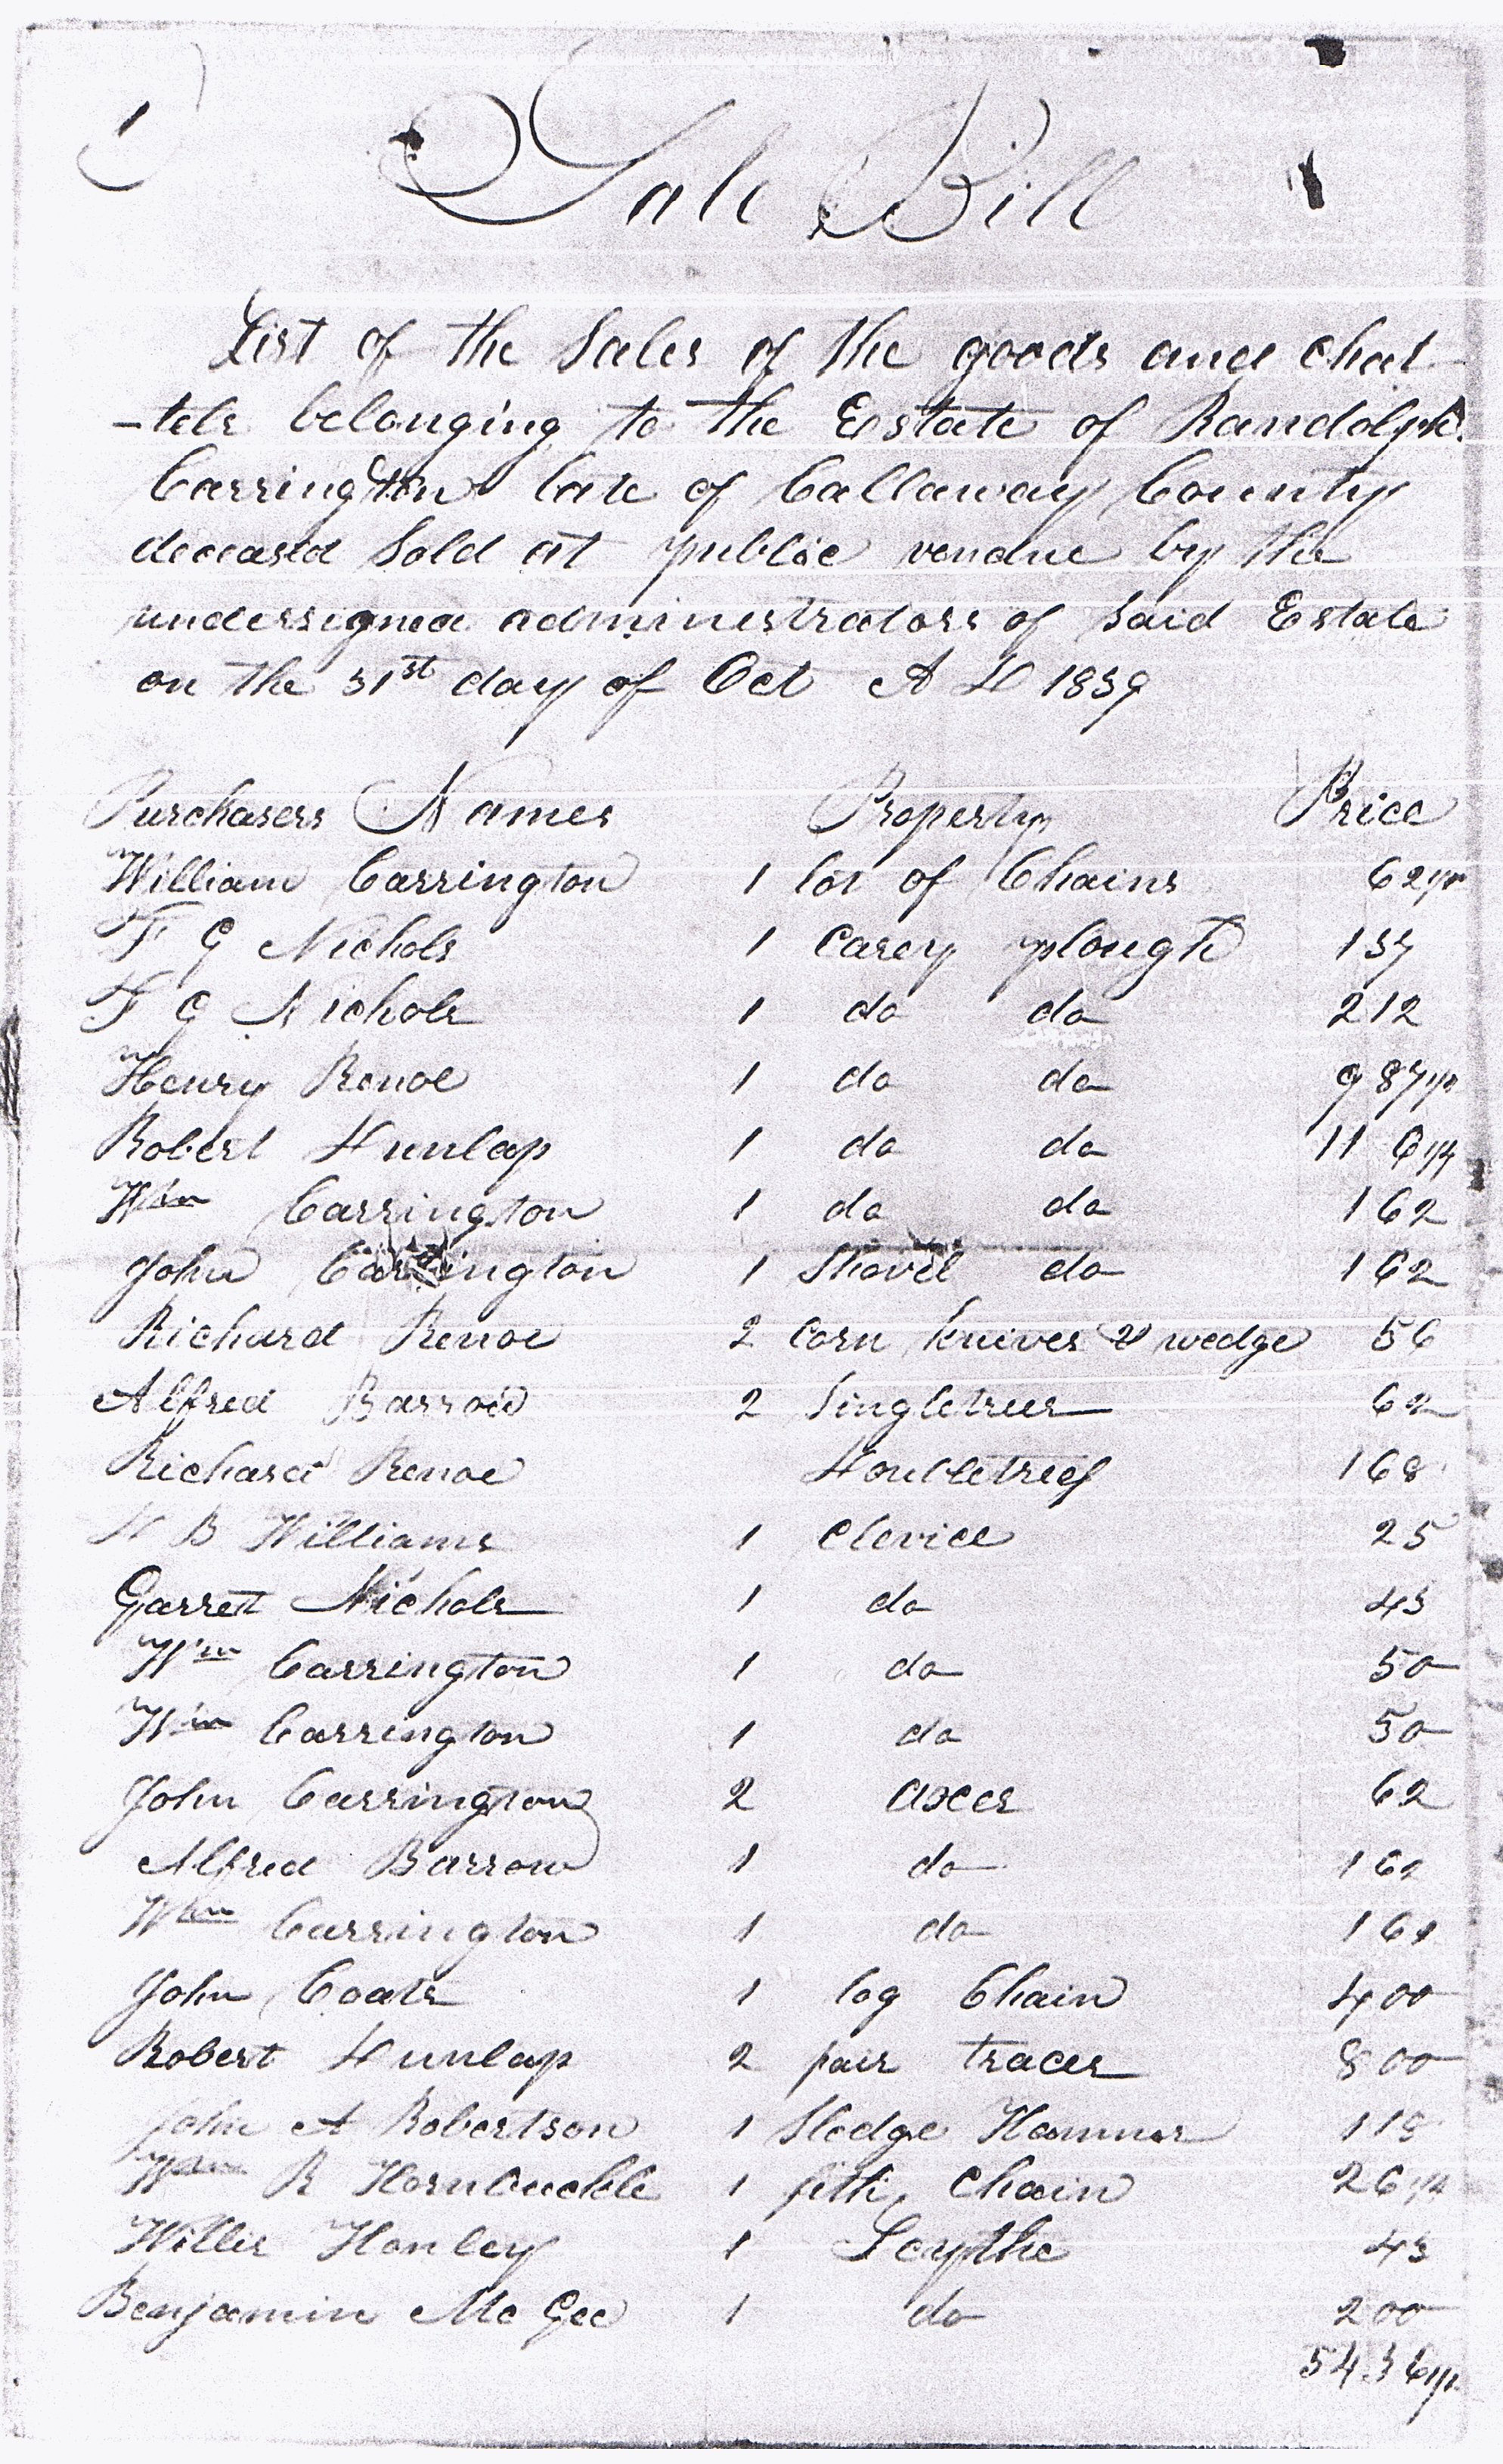 Sale Bill
List of the Sales of the goods and chat
-tels belonging to the Estate of Randolph
Carrington late of Callaway County
deceased Sold at public vendue by the
undersigned administrators of Said Estate
on the 31st day of Oct A D 1839
Purchasers Names Property Price
William Carrington 1 lot of Chains 62 1/2
F G Nichols 1 Carey plough 137
F G Nichols 1 do do 212
Henry Renoe 1 do do 9 87 1/2
Robert Dunlap 1 do do 11 6 1/4
Wm Carrington 1 do do 162
John Carrington 1 Shovel do 162
Richard Renoe 2 Corn knives & wedge 56
Alfred Barrow 2 Singletrees 62
Richard Renoe Doubletrees 168
D B Williams 1 Clevice 25
Garrett Nichols 1 do 43
Wm Carrington 1 do 50
Wm Carrington 1 do 50
John Carrington 2 axes 62
Alfred Barrow 1 do 162
Wm Carrington 1 do
John Coats 1 log Chain 400
Robert Dunlap 2 pair traces 800
John A Robertson 1 Sledge Hammer 118
Wm R Hornbuckle 1 fifth Chain 2 6 1/4
Willis Hanley 1 Scythe 43
Benjamin McGee 1 do 200